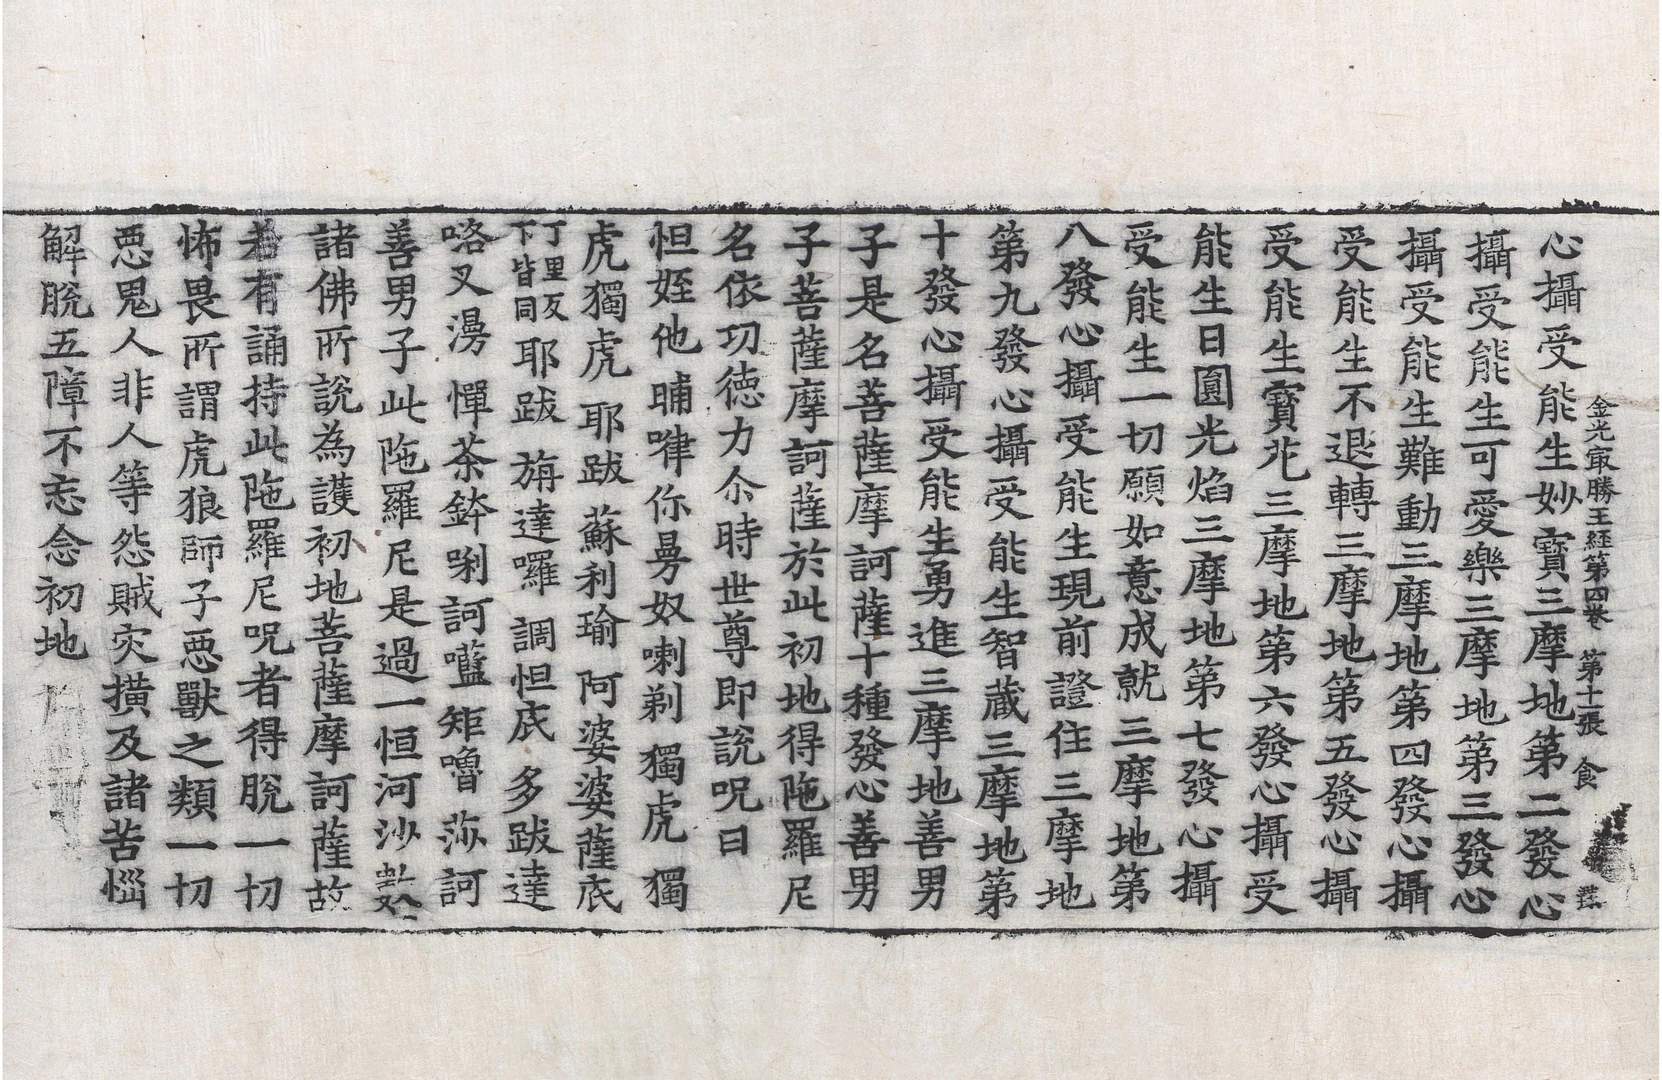 金光㝡勝王經第四卷　第十一張　食
心攝受能生妙寶三摩地第二發心
攝受能生可愛樂三摩地第三發心
攝受能生難動三摩地第四發心攝
受能生不退轉三摩地第五發心攝
受能生寶花三摩地第六發心攝受
能生日圓光焰三摩地第七發心攝
受能生一切願如意成就三摩地第
八發心攝受能生現前證住三摩地
第九發心攝受能生智藏三摩地第
十發心攝受能生勇進三摩地善男
子是名菩薩摩訶薩十種發心善男
子菩薩摩訶薩於此初地得陁羅尼
名依功德力尒時世尊即說呪曰
怛姪他　晡嚩你曼奴喇剃　獨虎　獨
虎獨虎　耶跋　蘇利瑜　阿婆婆薩底
丁里反下皆同　耶跋　旃達囉　調怛底　多跋達
咯叉漫　憚荼鉢唎訶𡃤　矩嚕　莎訶
善男子此陁羅尼是過一恒河沙數
諸佛所說為護初地菩薩摩訶薩故
若有誦持此陁羅尼呪者得脫一切
怖畏所謂虎狼師子惡獸之類一切
惡鬼人非人等怨賊灾橫及諸苦惱
解脫五障不忘念初地